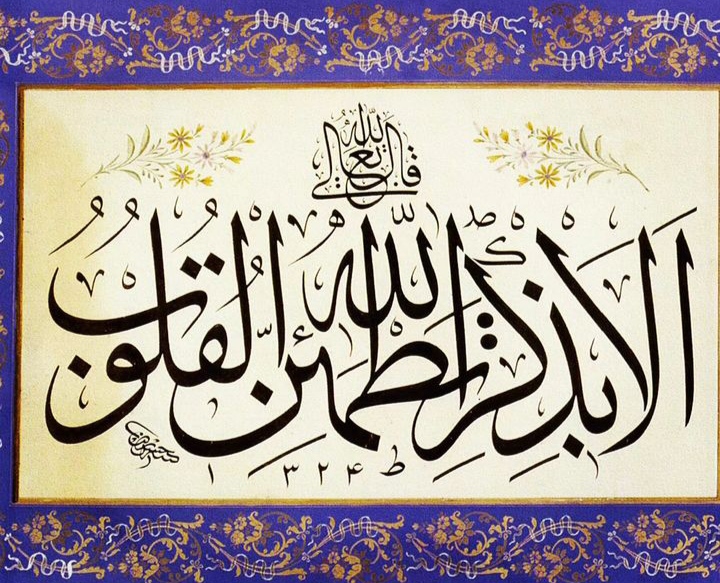 قال الله تعالى
الا بذكر الله تطمئن القلوب
١٣٢۴